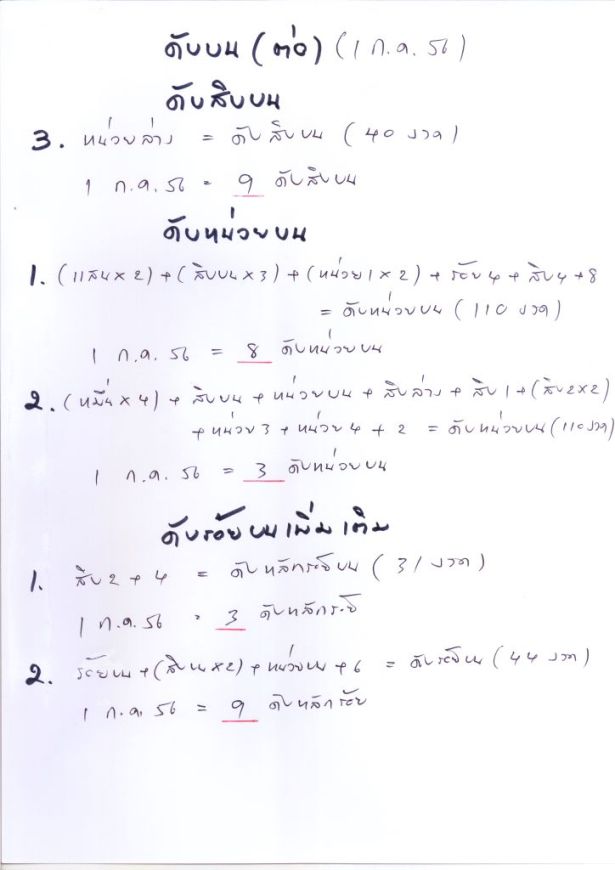 ดับบน (ต่อ) (1 ก.ค. 56)
ดับสิบบน
3. หน่วยล่าง = ดับสิบบน (40 งวด)
1 ก.ค. 56 = 9 ดับสิบบน
ดับหน่วยบน
1. (แสน × 2) + (สิบบน × 3) + (หน่วย 1 × 2) + ร้อย 4 + สิบ 4 + 8
= ดับหน่วยบน (110 งวด)
1 ก.ค. 56 = 8 ดับหน่วยบน
2. (หมื่น × 4) + สิบบน + หน่วยบน + สิบล่าง + สิบ 1 + (สิบ 2 × 2)
+ หน่วย 3 + หน่วย 4 + 2 = ดับหน่วยบน (110 งวด)
1 ก.ค. 56 = 3 ดับหน่วยบน
ดับร้อยบนเพิ่มเติม
1. สิบ 2 + 4 = ดับหลักร้อยบน (31 งวด)
1 ก.ค. 56 = 3 ดับหลักร้อย
2. ร้อยบน + (สิบบน × 2) + หน่วยบน + 6 = ดับร้อยบน (44 งวด)
1 ก.ค. 56 = 9 ดับหลักร้อย